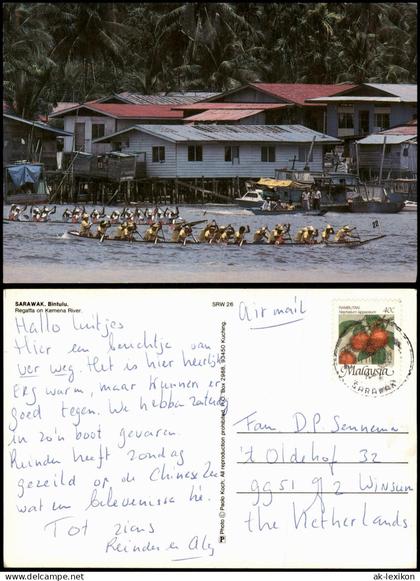 SARAWAK. Bintulu.
Regatta on Kemena River.
SRW 26
Hallo luitjes
Hier een berichtje van
ver weg. Het is hier heerlijk
Erg warm, maar kunnen er
goed tegen. We hebben zaterdag
in zo'n boot gevaren.
Reinder heeft zondag
gezeild op de Chinese Zee
wat een belevenissen hè.
Tot ziens
Reinder en
Photo © Paolo Koch. All reproduction prohibited. P.O. Box 7988, 93450 Kuching.
Air mail
RAMBUTAN
Nephelium lappaceum
40c
Malaysia
SARAWAK
Fam. D.P. Sennema
't Oldehof 32
9951 Winsum
the Netherlands
© www.ansichtskartenversand.com
ak-lexikon